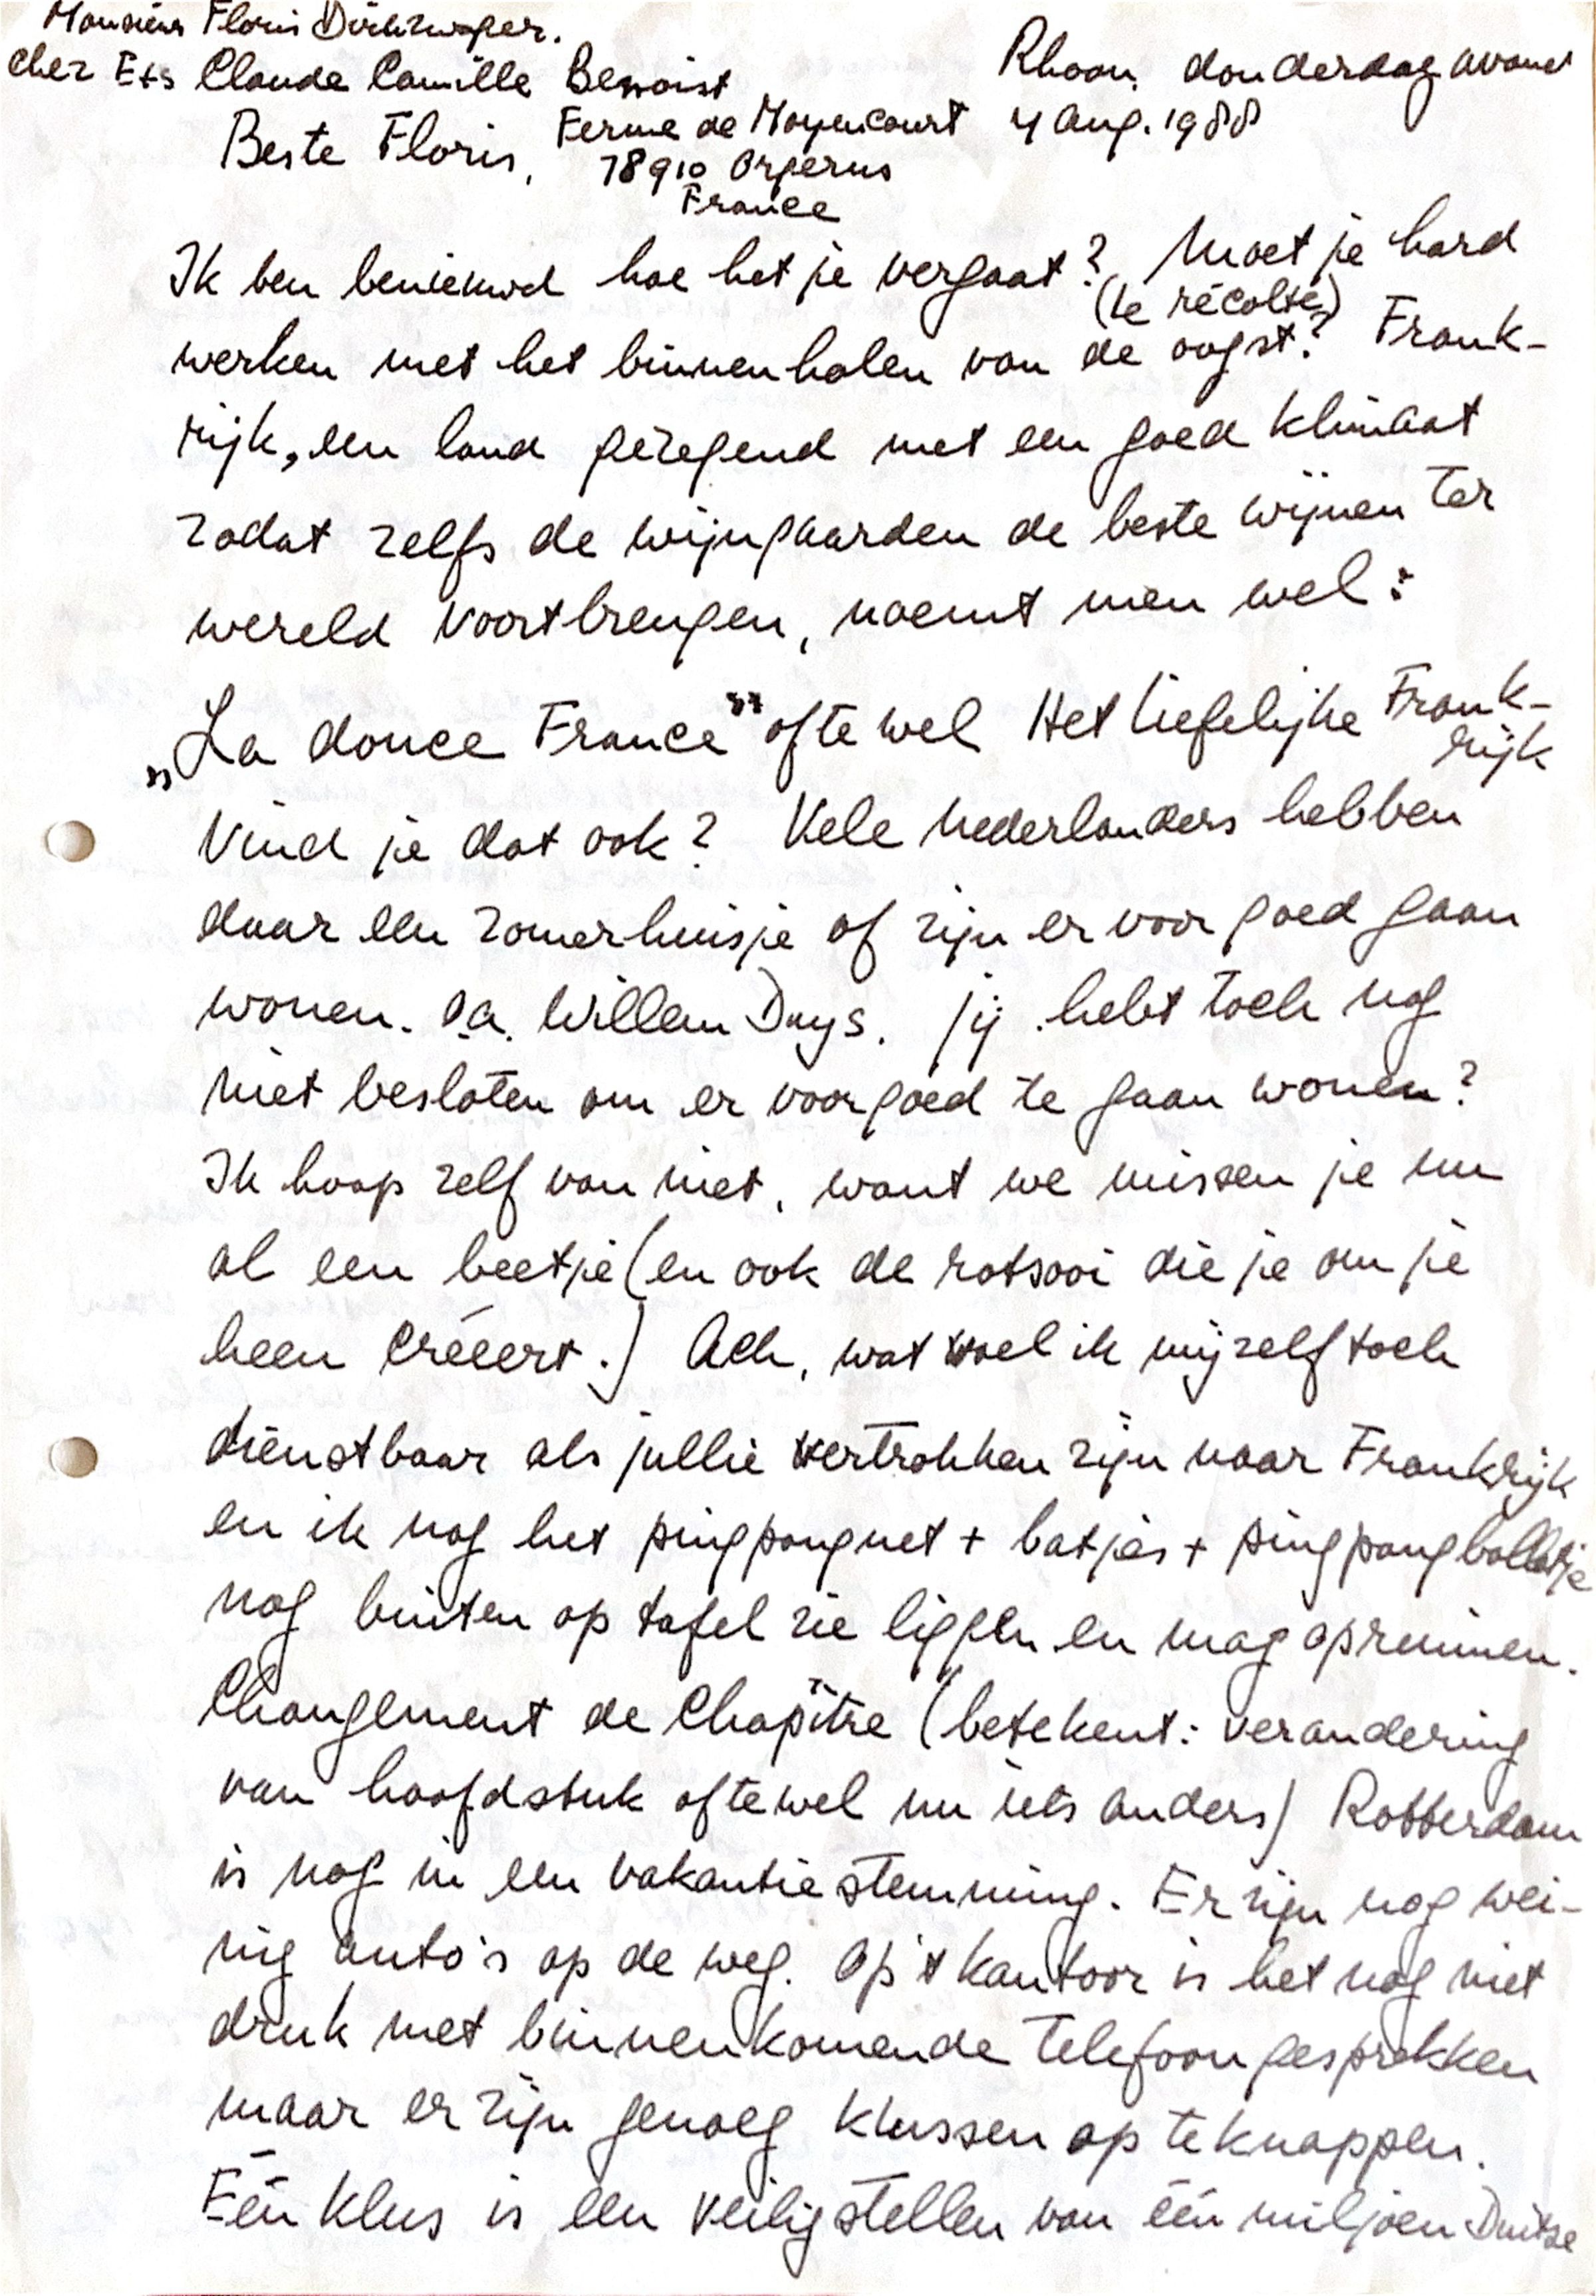 Monsieur Floris Dirkzwager.
chez Ets Claude Camille Benoist
Ferme de Moyencourt
78910 Orgerus
France
Rhoon, donderdagavond
4 Aug. 1988
Beste Floris,
Ik ben benieuwd hoe het je vergaat? Moet je hard
(le récolte)
werken met het binnenhalen van de oogst? Frank-
rijk, een land gezegend met een goed klimaat
zodat zelfs de wijngaarden de beste wijnen ter
wereld voortbrengen, noemt men wel:
„La douce France" oftewel Het liefelijke Frank-
rijk
Vind je dat ook? Vele Nederlanders hebben
daar een zomerhuisje of zijn er voor goed gaan
wonen. o.a. Willem Duys. Jij hebt toch nog
niet besloten om er voorgoed te gaan wonen?
Ik hoop zelf van niet, want we missen je nu
al een beetje (en ook de rotsooi die je om je
heen creëert.) Ach, wat voel ik mijzelf toch
dienstbaar als jullie vertrokken zijn naar Frankrijk
en ik nog het pingpongnet + batjes + pingpongballetje
nog buiten op tafel zie liggen en mag opruimen.
Changement de Chapître (betekent: verandering
van hoofdstuk oftewel nu iets anders) Rotterdam
is nog in een vakantiestemming. Er zijn nog wei-
nig auto's op de weg. Op 't kantoor is het nog niet
druk met binnenkomende telefoongesprekken
maar er zijn genoeg klussen op te knappen.
Eén klus is een veiligstellen van één miljoen Duitse